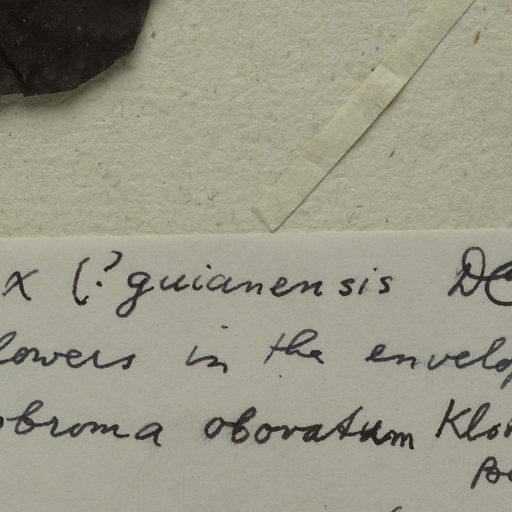 x (? guianensis DC
lowers in the envelop
obroma obovatum Klo